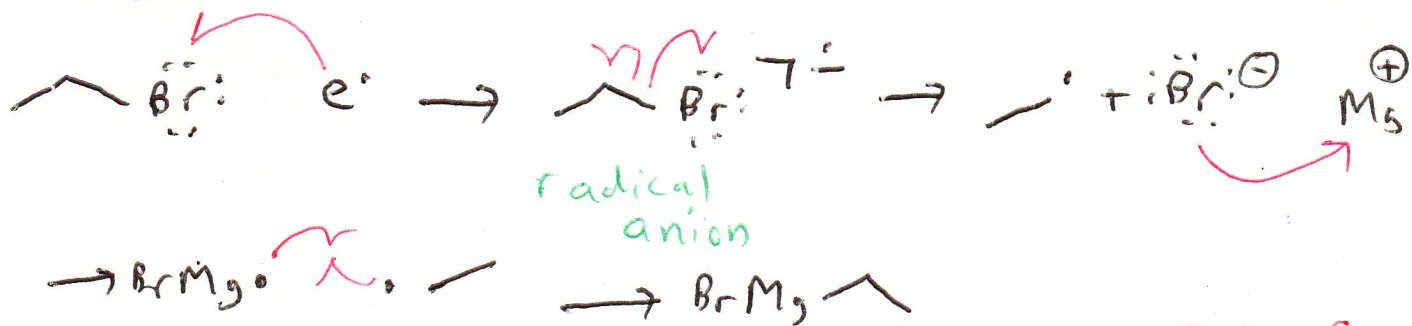 Br e → Br → + Br ⊖ Mg ⊕
radical
anion
→ BrMg • • → BrMg